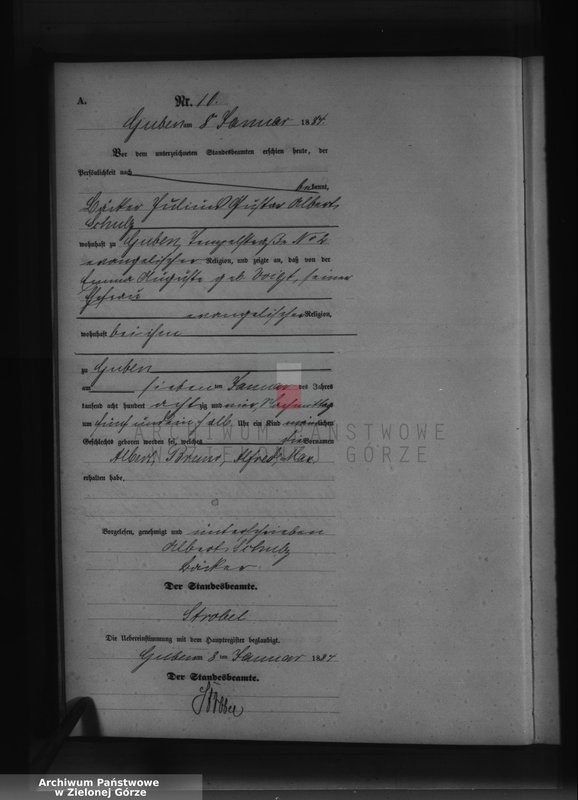 A.
Nr. 10.
Guben am 8 Januar 1884.
Vor dem unterzeichneten Standesbeamten erschien heute, der
Persönlichkeit nach
bekannt,
Bäcker Julius Gustav Albert
Schulz
wohnhaft zu Guben, Tempelstraße No 2
evangelischer Religion, und zeigte an, daß von der
Emma Auguste geb. Voigt, seiner
Ehefrau
evangelischer Religion,
wohnhaft bei ihm
zu Guben
am sieben ten Januar des Jahres
tausend acht hundert achtzig und vier, Nachmittag
um fünf und ein halb Uhr ein Kind männlichen
Geschlechts geboren worden sei, welches die Vornamen
Albert, Bruno, Alfred, Max,
erhalten habe.
Vorgelesen, genehmigt und unterschrieben
Albert Schulz
Bäcker
Der Standesbeamte.
Strobel
Die Uebereinstimmung mit dem Hauptregister beglaubigt.
Guben am 8 ten Januar 1884
Der Standesbeamte.
ARCHIWUM PAŃSTWOWE
W ZIELONEJ GÓRZE
Archiwum Państwowe
w Zielonej Górze